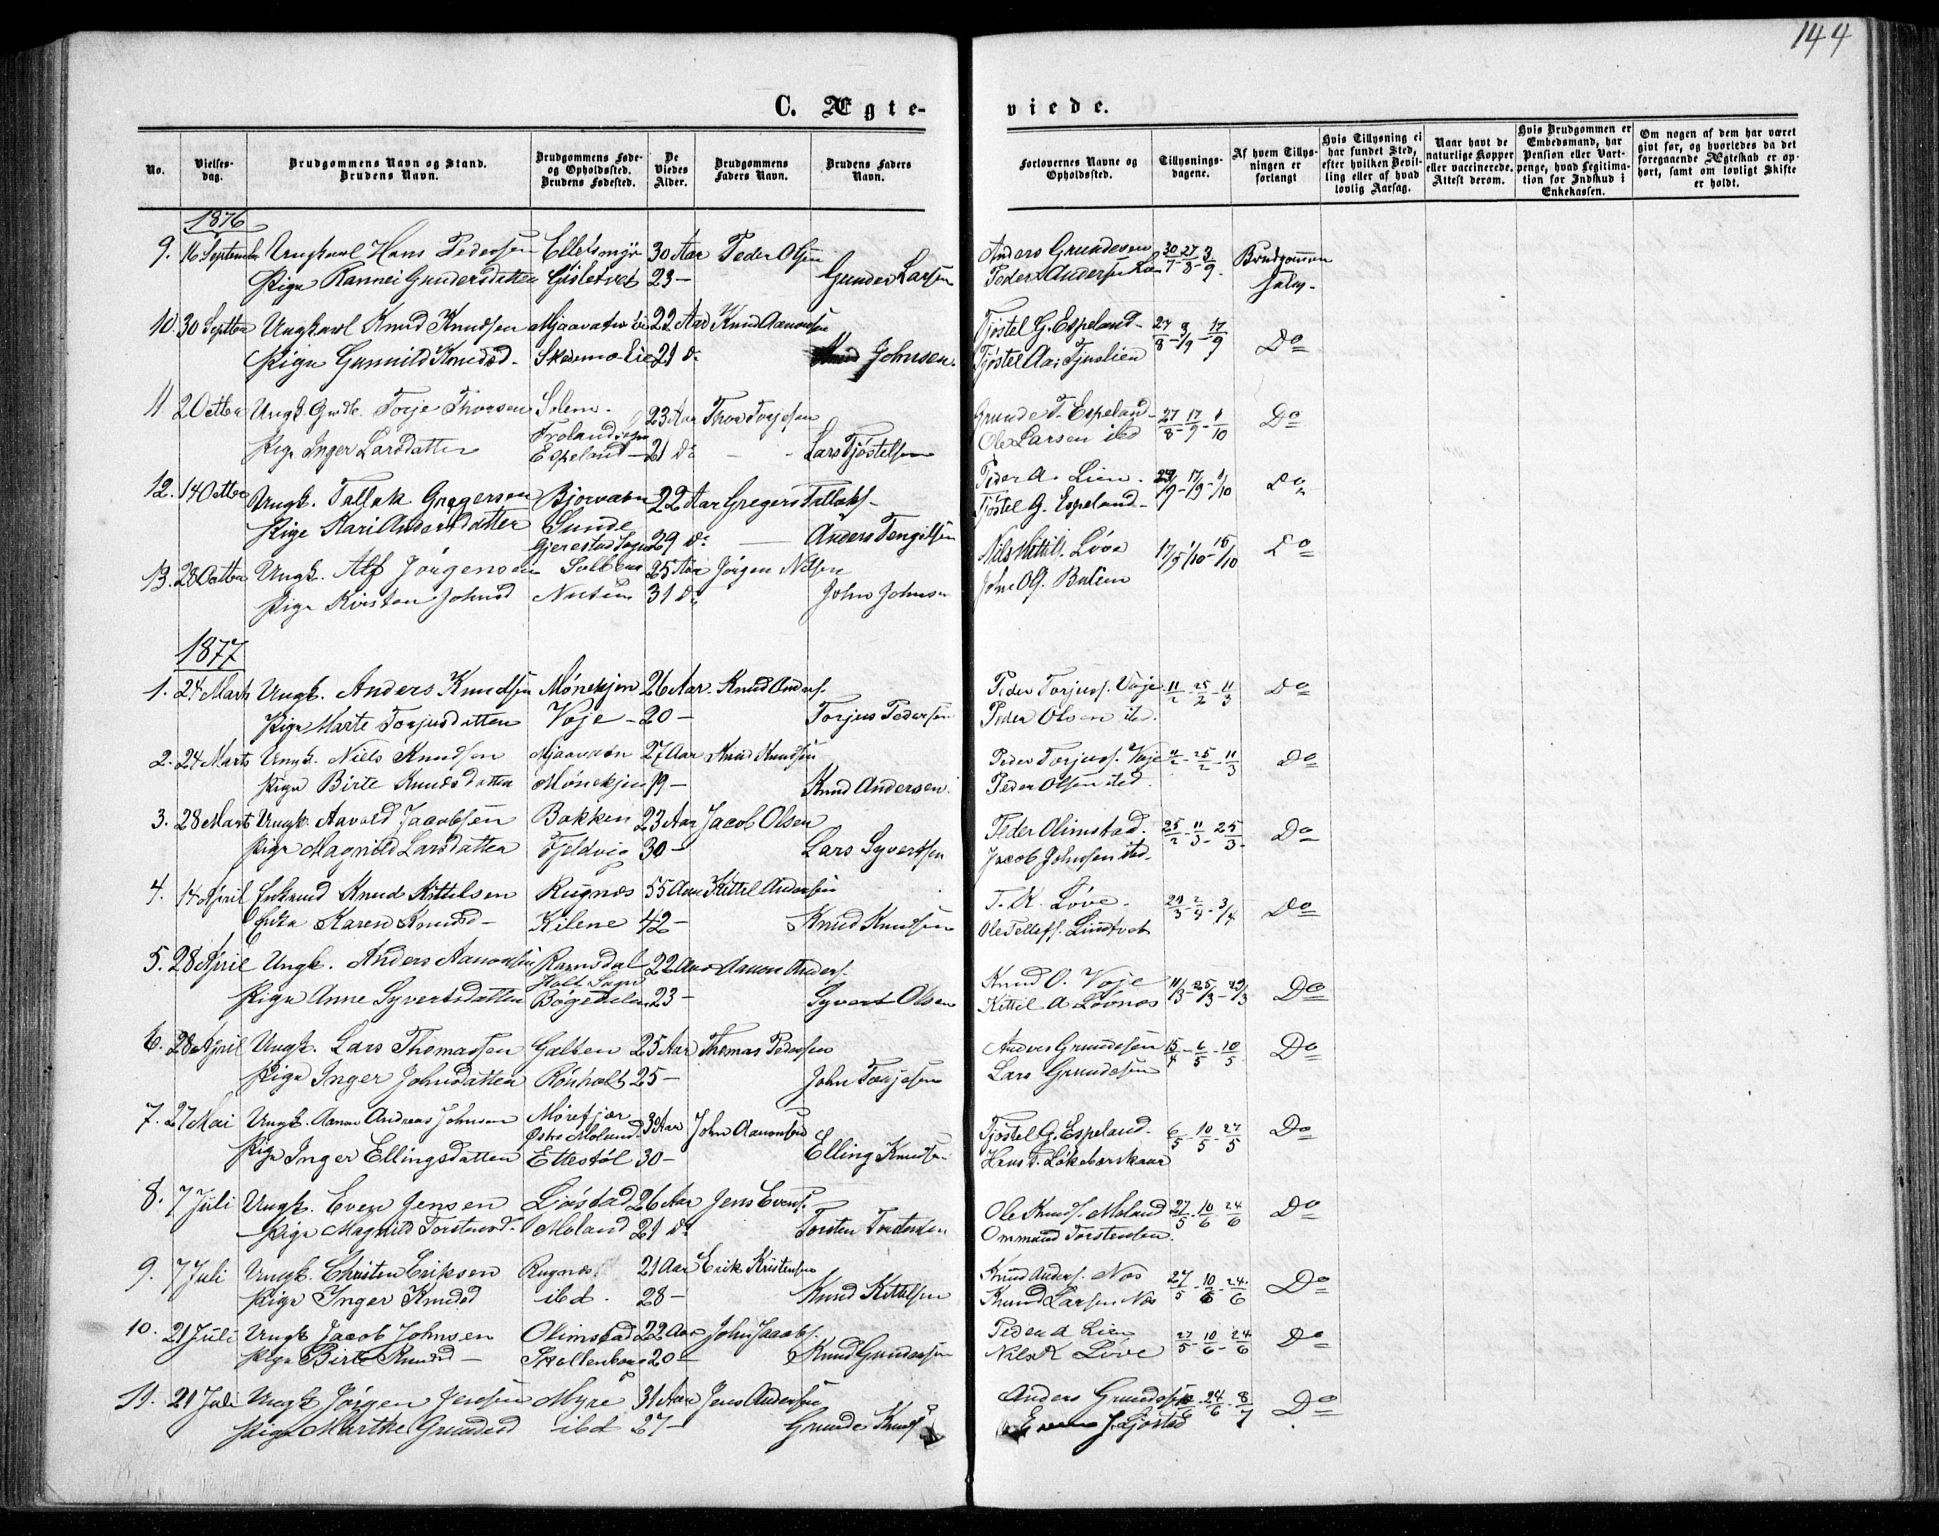 144
C. Ægte- viede.
No. | Vielses-dag. | Brudgommens Navn og Stand. Brudens Navn. | Brudgommens Føde- og Opholdssted. Brudens Fødested. | De Viedes Alder. | Brudgommens Faders Navn. | Brudens Faders Navn. | Forlovernes Navne og Opholdssted. | Tillysnings-dagene. | Af hvem Tillysningen er forlangt | Hvis Tillysning ei har fundet Sted, efter hvilken Bevilling eller af hvad lovlig Aarsag. | Naar havt de naturlige Kopper eller vaccinerede. Attest derom. | Hvis Brudgommen er Embedsmand, har Pension eller Vartpenge, hvad Legitimation for Indskud i Enkekassen. | Om nogen af dem har været givt før, og hvorledes da det foregaaende Ægteskab er ophørt, samt om lovligt Skifte er holdt.
1876
9. 16 September Ungkarl Hans Pedersen Ellefsmyr 30 Aar Peder Olsen Anders Grundesen 30/7 - 27/8 - 3/9 Brudgommen
Pige Kannei Gundersdatter Gisletvet 23 - Gunder Larsen Peder Andersen Lien
10. 30 Septber Ungkarl Knud Knudsen 22 Aar Knud Aanonsen Tjøstel G. Espeland - 27/8 - 3/9 - 17/9 Do
Pige Gunnild Knudsd. 21 do Johnsen. Tjøstel Aa:
11 2 Octber Ungk. Torje Thorsen Solem. 23 Aar Thor Torjesen Grunde T. Espeland - 27/8 - 17/9 - 1/10 Do
Froland Sogn
Pige Inger Larsdatter Espeland - 21 do Lars Tjøstelsen Ole Larsen ibd
12. 14 Octber Ungk. Tallak Gregersen Bjorvatn 22 Aar Gregers Tallaks. Peder A. Lien. 17/9 - 1/10 Do
Pige Kari Andersdatter Sunde Tjøstel G. Espeland -
Gjerestad Sogn 29 do Anders Tengelsen
13. 28 Octber Ungk. Alf Jørgensen 25 Aar Jørgen Nilsen Nils Kittils. Løve 17/9 1/10 - 15/10 Do
Pige Kirsten Johnsd 31 do John Johnsen John Ol.
1877
1. 24 Marts Ungk. Anders Knudsen Mønekjen 26 Aar. Knud Anders. Peder Torjuss. Voje 11/2 - 25/2 - 11/3 Do
Pige Marte Torjusdatter Voje - 20 - Torjus Pedersen Peder Olsen ibd.
2. 24 Marts Ungk. Niels Knudsen Mjaavatn 27 Aar Knud Knudsen Peder Torjuss. Voje 11/2 - 25/2 - 11/3 Do
Pige Birte Knudsdatter Mønekjen 19 - Knud Andersen. Peder Olsen ibd.
3. 28 Marts Ungk. Aavold Jacobsen Bakken 23 Aar Jacob Olsen Peder Olimstad. 25/2 - 11/3 - 25/3 - Do
Pige Magnild Larsdatter Fjeldvig 30 - Lars Syvertsen Jacob Johnsen ibd.
4. 14 April Enkemd Knud Kittelsen Rugnæs 55 Aar Kittil Andersen T. K. Løve. 2/4 - 3/4 Do
Enke Karen Knudsd - Kilene 42 - Knud Knudsen Ole Tellefs. Lindtveit
5. 28 April Ungk. Anders Aanonsen Ramsdal 22 Aar Aanon Anders. Knud O. Voje 11/3 - 25/3 - Do
Holt Sogn
Pige Anne Syvertsdatter Bøgedalen 23 - Syvert Olsen Kittil A Løvnæs
6. 28 April Ungk. Lars Thomassen Galten 25 Aar Thomas Pedersen Anders Grundesen 15/4 - 6/5 - 10/5 Do
Pige Inger Johnsdatter Rønholt 25 - John Torjesen Lars Grundesen
7. 27 Mai Ungk. Aanon Andreas Johnsen Mørefjær John Aanonsen Tjøstel G. Espeland. 6/5 - 10/5 - 27/5 Do
Østre Moland.
Pige Inger Ellingsdatter Ettestøl 30 - Elling Knudsen Hans T. Løkebærskaar
8. 7 Juli Ungk. Even Jensen Ljøstad 26 Aar Jens Evens. Ole Knuds. Moland 27/5 - 10/6 - 24/6 Do
Pige Magnild Torstensd. Moland 21 do Torsten Torstensen Ommund Torstensen.
9. 7 Juli Ungk. Christen Eriksen Rugnæs 21 Aar Erik Kristensen Knud Anders. Næs 27/5 - 10/6 - 24/6 Do
Pige Inger Knudsd ibd. 28 - Knud Kittelsen Knud Larsen Næs
10. 21 Juli Ungk Jacob Johnsen Olimstad 22 Aar John Jacobs. Peder A Lien 27/5 - 10/6 - 24/6 Do
Pige Birte Knudsd - Skallenborg 20 - Knud Gundersen Nils K Løve
11. 21 Juli Ungk Jørgen Jensen Myre 31 Aar Jens Andersen Anders Grundesen 24/6 - 8/7 Do
Pige Marthe Grundesd ibd 27 - Grunde Knuds. Even J. Ljøstad